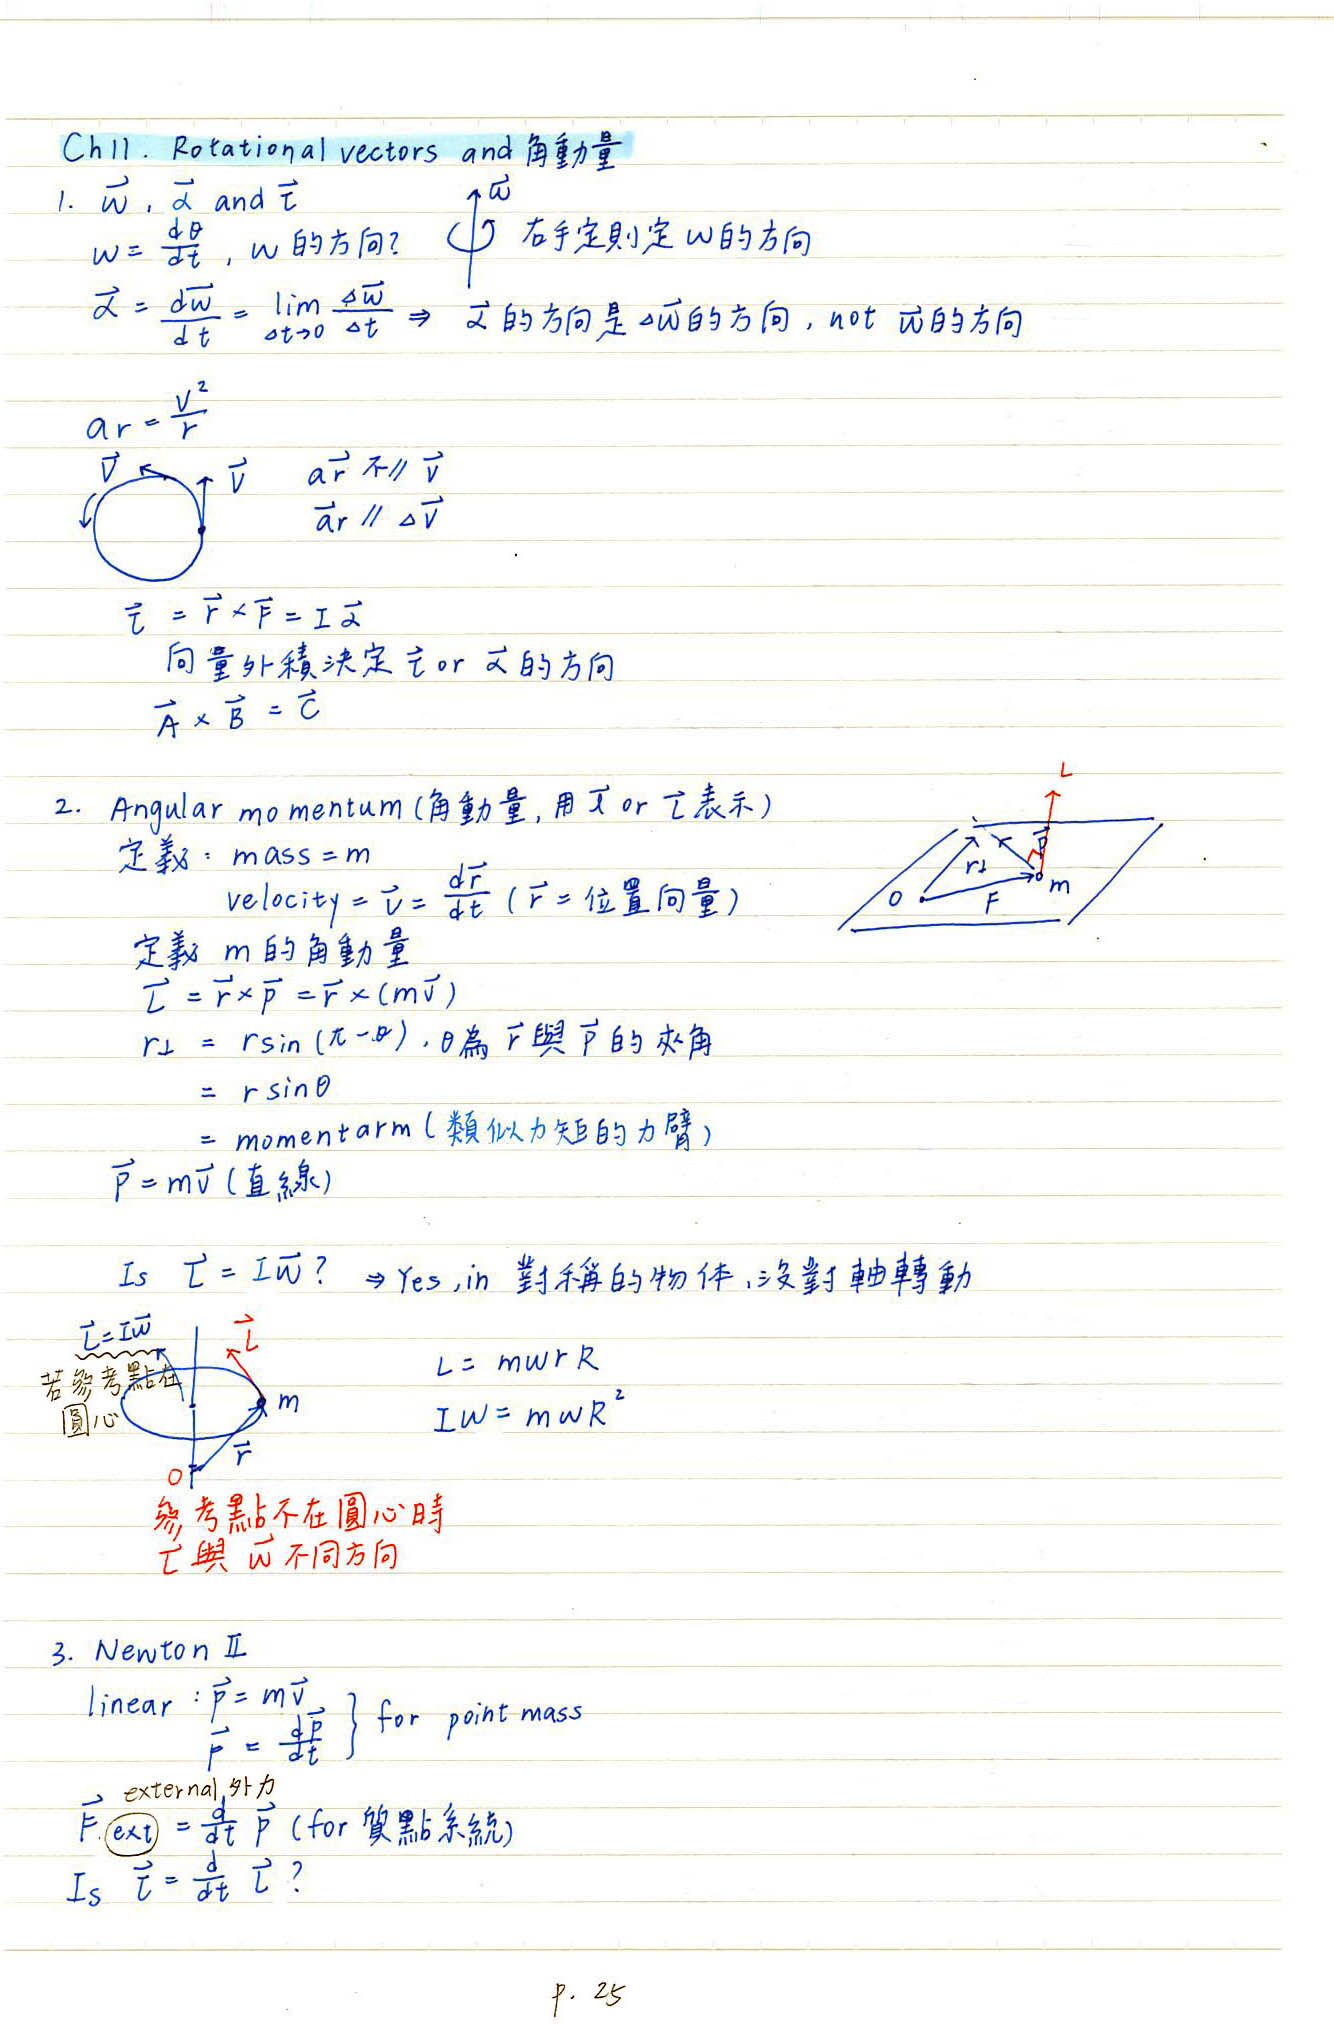 Ch11. Rotational vectors and 角動量
1. w⃗, α⃗ and τ⃗
w = dθ/dt, w 的方向? w⃗ 右手定則定 w 的方向
α⃗ = dw⃗/dt = lim Δt→0 Δw⃗/Δt ⇒ α⃗ 的方向是 Δw⃗ 的方向, not w⃗ 的方向
ar = V²/r
V⃗ V⃗ ar⃗ 不∥ V⃗
a⃗r ∥ ΔV⃗
τ⃗ = r⃗ × F⃗ = I α⃗
向量外積決定 τ⃗ or α⃗ 的方向
A⃗ × B⃗ = C⃗
2. Angular momentum (角動量, 用 l⃗ or L⃗ 表示)
定義: mass = m
velocity = v⃗ = dr⃗/dt (r⃗ = 位置向量)
L r P⃗ r⊥ m O r
定義 m 的角動量
L⃗ = r⃗ × p⃗ = r⃗ × (mv⃗)
r⊥ = r sin (π-θ), θ為 r⃗ 與 P⃗ 的夾角
= r sinθ
= momentarm (類似力矩的力臂)
P⃗ = mv⃗ (直線)
Is L⃗ = Iw⃗? ⇒ Yes, in 對稱的物体, 沒對軸轉動
L⃗ = Iw⃗ L⃗
若參考點在
圓心
m
r⃗
O
L = mwrR
Iw = mwR²
參考點不在圓心時
L⃗ 與 w⃗ 不同方向
3. Newton II
linear: p⃗ = mv⃗
F⃗ = dp⃗/dt } for point mass
external, 外力
F⃗ ext = d/dt P⃗ (for 質點系統)
Is τ⃗ = d/dt L⃗ ?
P. 25